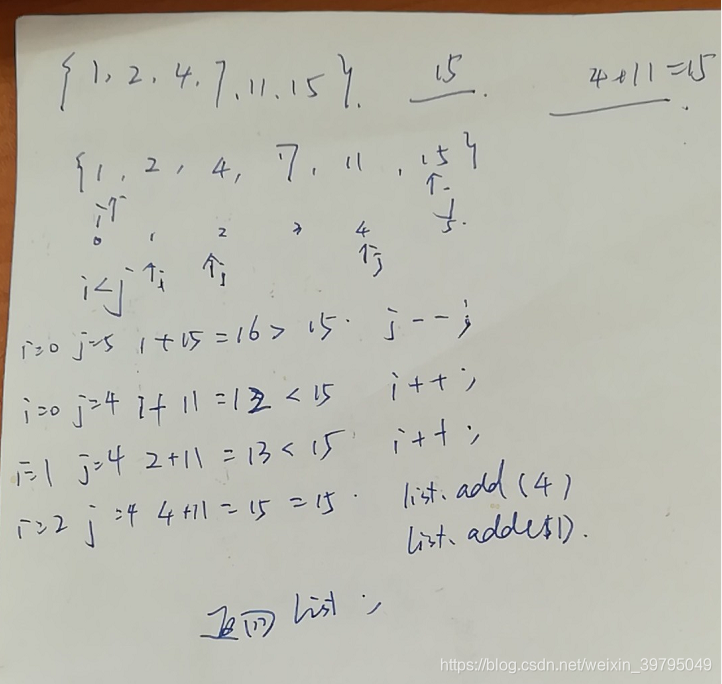 {1, 2, 4, 7, 11, 15}. 15. 4+11=15.
{1, 2, 4, 7, 11, 15}
i↑ ↑
0 1 2 3 4 5.
i<j ↑i ↑j ↑j
i=0 j=5 1+15=16>15. j--;
i=0 j=4 1+11=12<15 i++;
i=1 j=4 2+11=13<15 i++;
i=2 j=4 4+11=15=15. list.add(4)
list.add(11).
返回 list;
https://blog.csdn.net/weixin_39795049